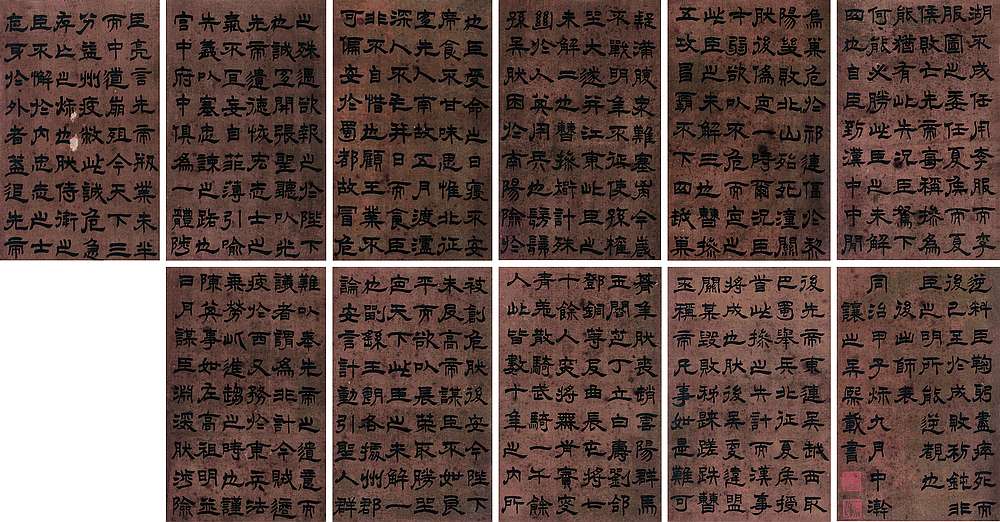 臣亮言先帝創業未半
而中道崩殂今天下三
分益州疲敝此誠危急
存亡之秋也然侍衛之
臣不懈於內忠志之士
忘身於外者蓋追先帝
之殊遇欲報之於陛下
也誠宜開張聖聽以光
先帝遺德恢宏志士之
氣不宜妄自菲薄引喻
失義以塞忠諫之路也
宮中府中俱為一體陟
也臣受命之日寢不安
席食不甘味思惟北征
宜先入南故五月渡瀘
深入不毛并日而食臣
非不自惜也顧王業不
可偏安於蜀都故冒危
疑滿腹眾難塞胸今歲
不戰明年不征使孫權
坐大遂并江東此臣之
未解二也曹操智計殊
絕於人其用兵也髣髴
孫吳然困於南陽險於
烏巢危於祁連偪於黎
陽幾敗北山殆死潼關
然後偽定一時爾況臣
才弱欲以不危而定之
此臣之未解三也曹操
五攻昌霸不下四越巢
湖不成任用李服而李
服圖之委任夏侯而夏
侯敗亡先帝每稱操為
能猶有此失況臣駑下
何能必勝此臣之未解
四也自臣到漢中中間
難以奉先帝之遺意而
議者謂為非計今賊適
疲於西又務於東兵法
乘勞此進趨之時也謹
陳其事如左高祖明並
日月謀臣淵深然涉險
被創危然後安今陛下
未及高帝謀臣不如良
平而欲以長策取勝坐
定天下此臣之未解一
也劉繇王朗各據州郡
論安言計動引聖人群
朞年然喪趙雲陽群馬
玉閻芝丁立白壽劉郃
鄧銅等及曲長屯將七
十餘人突將無前賨叟
青羌散騎武騎一千餘
人此皆數十年之內所
後先帝東連吳越西取
巴蜀舉兵北征夏侯授
首此操之失計而漢事
將成也然後吳更違盟
關某毀敗秭歸蹉跌曹
丕稱帝凡事如是難可
逆料臣鞠躬盡瘁死而
後已至於成敗利鈍非
臣之明所能逆覩也
後出師表
同治甲子秋九月中澣
讓之吳熙載書